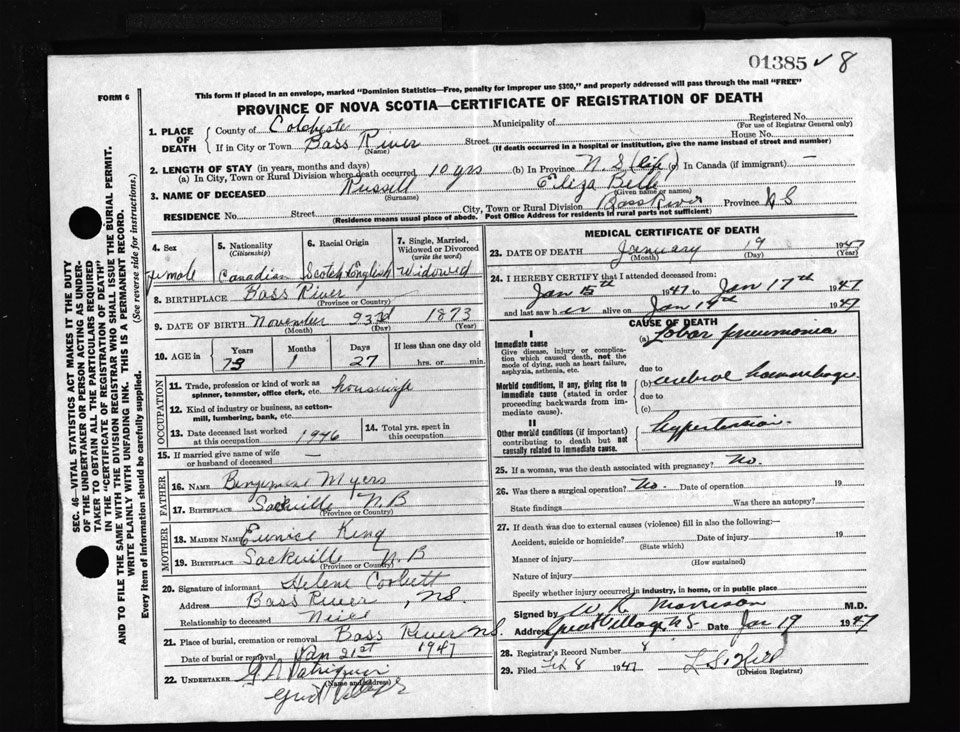 01385 ✓ 8
FORM 6
This form if placed in an envelope, marked "Dominion Statistics—Free, penalty for improper use $300," and properly addressed will pass through the mail "FREE"
PROVINCE OF NOVA SCOTIA—CERTIFICATE OF REGISTRATION OF DEATH
SEC. 46—VITAL STATISTICS ACT MAKES IT THE DUTY
OF THE UNDERTAKER OR PERSON ACTING AS UNDER-
TAKER TO OBTAIN ALL THE PARTICULARS REQUIRED
IN THE "CERTIFICATE OF REGISTRATION OF DEATH"
AND TO FILE THE SAME WITH THE DIVISION REGISTRAR WHO SHALL ISSUE THE BURIAL PERMIT.
WRITE PLAINLY WITH UNFADING INK. THIS IS A PERMANENT RECORD.
Every item of information should be carefully supplied. (See reverse side for instructions.)
1. PLACE OF DEATH County of Colchester Municipality of Registered No.
(For use of Registrar General only)
If in City or Town Bass River Street House No.
(Name) (If death occurred in a hospital or institution, give the name instead of street and number)
2. LENGTH OF STAY (in years, months and days)
(a) In City, Town or Rural Division where death occurred 10 yrs (b) In Province N. S. (life) (c) In Canada (if immigrant) —
3. NAME OF DECEASED Russell Eliza Belle
(Surname) (Given name or names)
RESIDENCE No. Street City, Town or Rural Division Bass River Province N S
(Residence means usual place of abode. Post Office Address for residents in rural parts not sufficient)
4. Sex female
5. Nationality (Citizenship) Canadian
6. Racial Origin Scotch English
7. Single, Married, Widowed or Divorced (write the word) Widowed
8. BIRTHPLACE Bass River
(Province or Country)
9. DATE OF BIRTH November 23rd 1873
(Month) (Day) (Year)
10. AGE in Years 73 Months 1 Days 27 If less than one day old hrs. or min.
OCCUPATION
11. Trade, profession or kind of work as spinner, teamster, office clerk, etc. housewife
12. Kind of industry or business, as cotton-mill, lumbering, bank, etc.
13. Date deceased last worked at this occupation 1946
14. Total yrs. spent in this occupation
15. If married give name of wife or husband of deceased —
FATHER
16. NAME Benjamine Myers
17. BIRTHPLACE Sackville N.B
(Province or Country)
MOTHER
18. MAIDEN NAME Eunice King
19. BIRTHPLACE Sackville N. B
(Province or Country)
20. Signature of informant Helene Corbett
Address Bass River, N.S.
Relationship to deceased Niece
21. Place of burial, cremation or removal Bass River N.S.
Date of burial or removal Jan 21st 1947
22. UNDERTAKER
(Name and address)
MEDICAL CERTIFICATE OF DEATH
23. DATE OF DEATH January 19 1947
(Month) (Day) (Year)
24. I HEREBY CERTIFY that I attended deceased from:
Jan 15th 1947 to Jan 17th 1947
and last saw her alive on Jan 17th 1947
CAUSE OF DEATH
I
Immediate cause
Give disease, injury or complication which caused death, not the mode of dying, such as heart failure, asphyxia, asthenia, etc.
(a) Lobar pneumonia
due to
Morbid conditions, if any, giving rise to immediate cause (stated in order proceeding backwards from immediate cause).
(b) cerebral haemorrhage
due to
(c)
II
Other morbid conditions (if important) contributing to death but not causally related to immediate cause.
hypertension.
25. If a woman, was the death associated with pregnancy? No.
26. Was there a surgical operation? No. Date of operation 19
State findings Was there an autopsy?
27. If death was due to external causes (violence) fill in also the following:—
Accident, suicide or homicide? Date of injury 19
(State which)
Manner of injury
(How sustained)
Nature of injury
Specify whether injury occurred in industry, in home, or in public place
Signed by W R Morrison M.D.
Address Great Village N S Date Jan 19 1947
28. Registrar's Record Number 8
29. Filed Feb 8 1947 L S. Hill
(Division Registrar)